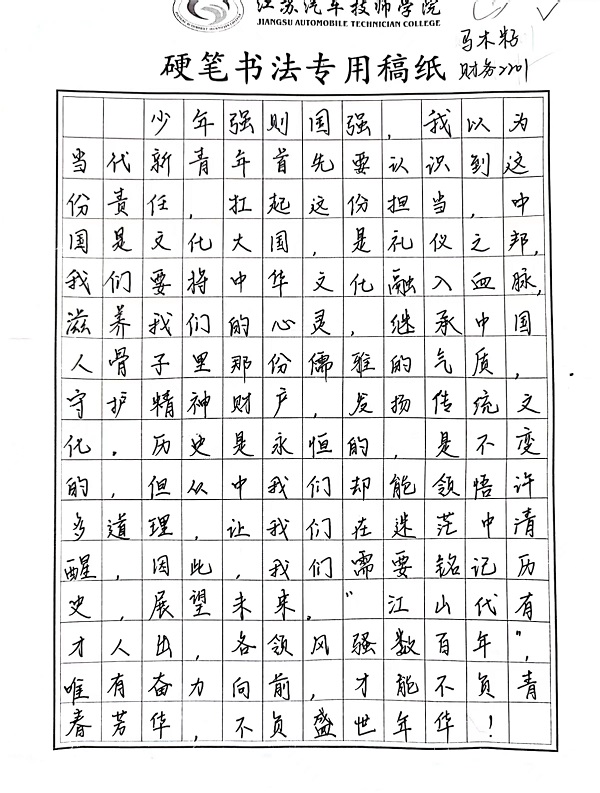 江苏汽车技师学院
JIANGSU AUTOMOBILE TECHNICIAN COLLEGE
马木籽
财务2201
硬笔书法专用稿纸
少年强则国强，我以为
当代新青年首先要认识到这
份责任，扛起这份担当，中
国是文化大国，是礼仪之邦，
我们要将中华文化融入血脉，
滋养我们的心灵，继承中国
人骨子里那份儒雅的气质，
守护精神财产，发扬传统文
化。历史是永恒的，是不变
的，但从中我们却能领悟许
多道理，让我们在迷茫中清
醒，因此，我们需要铭记历
史，展望未来。“江山代有
才人出，各领风骚数百年”，
唯有奋力向前，才能不负青
春芳华，不负盛世年华！